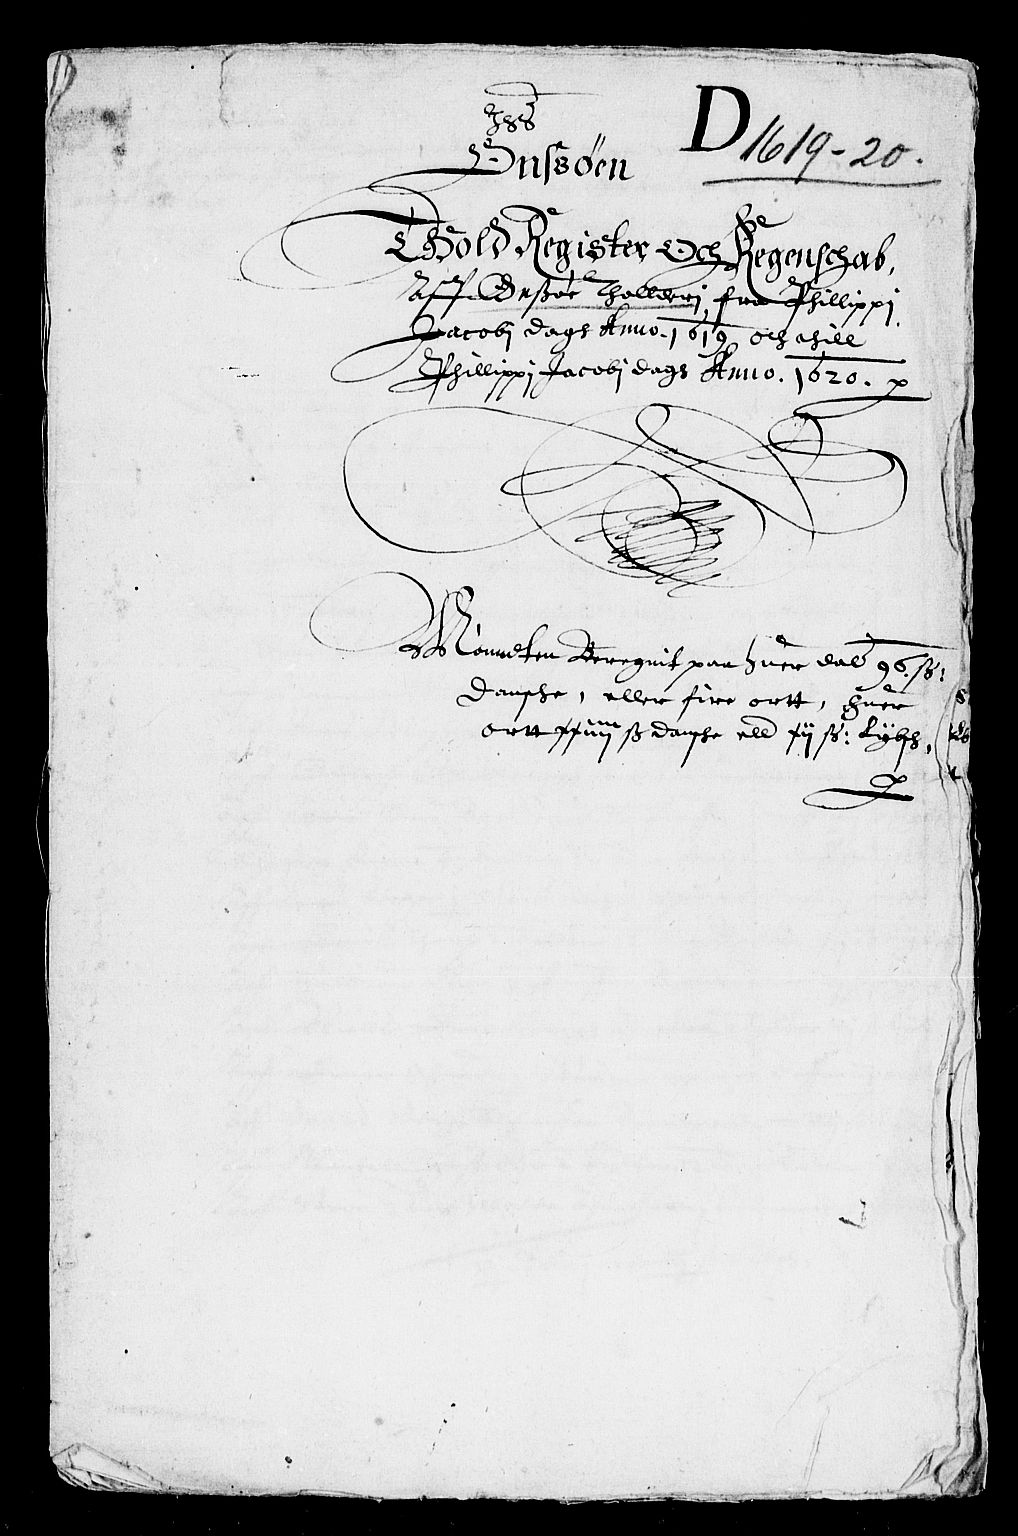 Jhs
D 1619-20.
Onssöen
Thold Register Och Regenschab,
Aff Onsöe Tholleri, fra Phillippi
Jacobi dags Anno. 1619 och thill
Phillippi Jacobi dags Anno. 1620.
Mönndten Beregnit paa huer dal 96. ß:
Danshe, eller fire ortt, huer
ortt ß danshe elld ß: Lybsh,